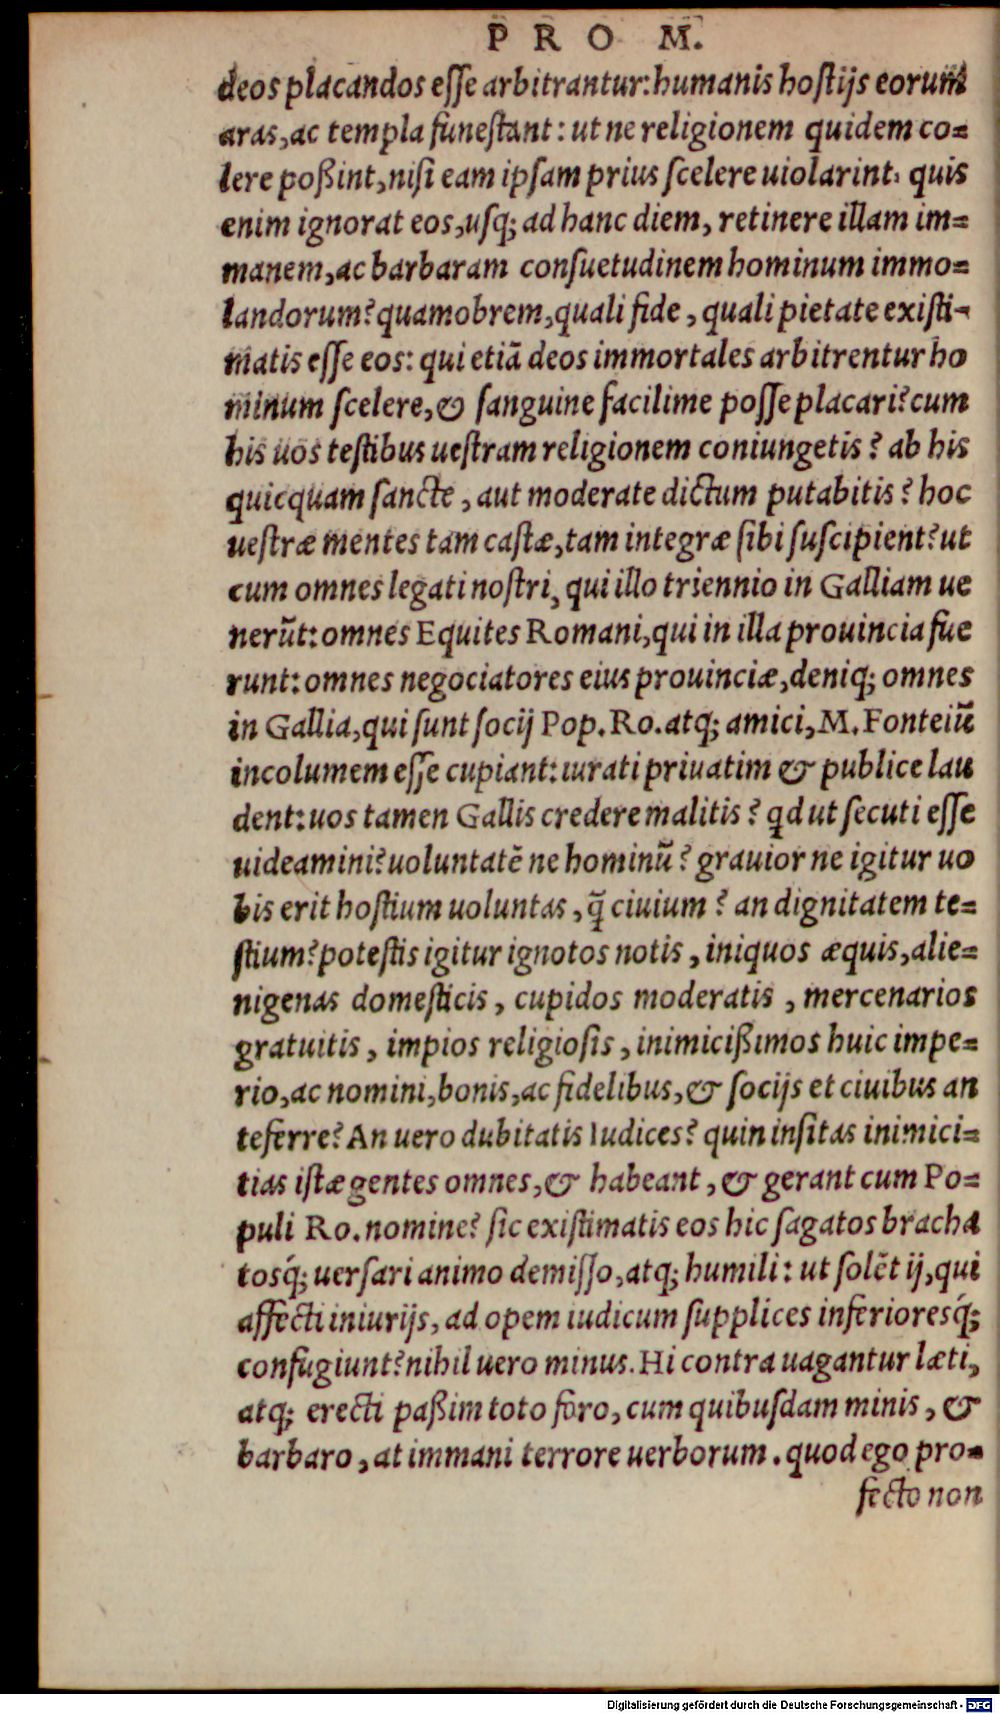 PRO M.
deos placandos eſſe arbitrantur: humanis hoſtijs eorum
aras, ac templa funeſtant: ut ne religionem quidem co=
lere poßint, niſi eam ipſam prius ſcelere uiolarint. quis
enim ignorat eos, uſq; ad hanc diem, retinere illam im=
manem, ac barbaram conſuetudinem hominum immo=
landorum? quamobrem, quali fide, quali pietate exiſti=
matis eſſe eos: qui etiā deos immortales arbitrentur ho
minum ſcelere, & ſanguine facilime poſſe placari? cum
his uos teſtibus ueſtram religionem coniungetis? ab his
quicquam ſancte, aut moderate dictum putabitis? hoc
ueſtræ mentes tam caſtæ, tam integræ ſibi ſuſcipient? ut
cum omnes legati noſtri, qui illo triennio in Galliam ue
nerũt: omnes Equites Romani, qui in illa prouincia fue
runt: omnes negociatores eius prouinciæ, deniq; omnes
in Gallia, qui ſunt ſocij Pop. Ro. atq; amici, M. Fonteiũ
incolumem eſſe cupiant: iurati priuatim & publice lau
dent: uos tamen Gallis credere malitis? qd ut ſecuti eſſe
uideamini? uoluntatẽ ne hominũ? grauior ne igitur uo
bis erit hoſtium uoluntas, q̃ ciuium? an dignitatem te=
ſtium? poteſtis igitur ignotos notis, iniquos æquis, alie=
nigenas domeſticis, cupidos moderatis, mercenarios
gratuitis, impios religioſis, inimicißimos huic impe=
rio, ac nomini, bonis, ac fidelibus, & ſocijs et ciuibus an
teferre? An uero dubitatis Iudices? quin inſitas inimici=
tias iſtæ gentes omnes, & habeant, & gerant cum Po=
puli Ro. nomine? ſic exiſtimatis eos hic ſagatos bracha
tosq́; uerſari animo demiſſo, atq; humili: ut ſolẽt ij, qui
affecti iniurijs, ad opem iudicum ſupplices inferiores q́;
confugiunt? nihil uero minus. Hi contra uagantur læti,
atq; erecti paßim toto foro, cum quibuſdam minis, &
barbaro, at immani terrore uerborum. quod ego pro=
fecto non
Digitalisierung gefördert durch die Deutsche Forschungsgemeinschaft - DFG